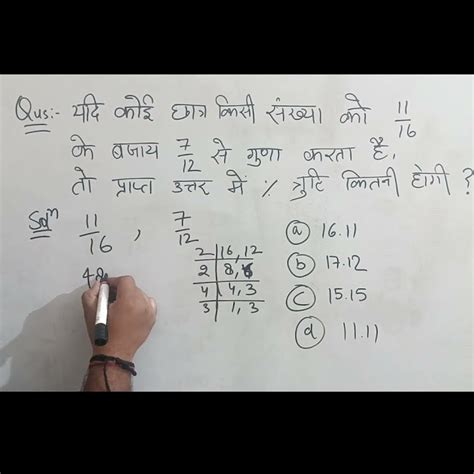 Qus:- यदि कोई छात्र किसी संख्या को 11/16
के बजाय 7/12 से गुणा करता है,
तो प्राप्त उत्तर में % त्रुटि कितनी होगी ?
Solⁿ 11/16 , 7/12
2 | 16, 12
2 | 8, 6
4 | 4, 3
3 | 1, 3
48
(a) 16.11
(b) 17.12
(c) 15.15
(d) 11.11